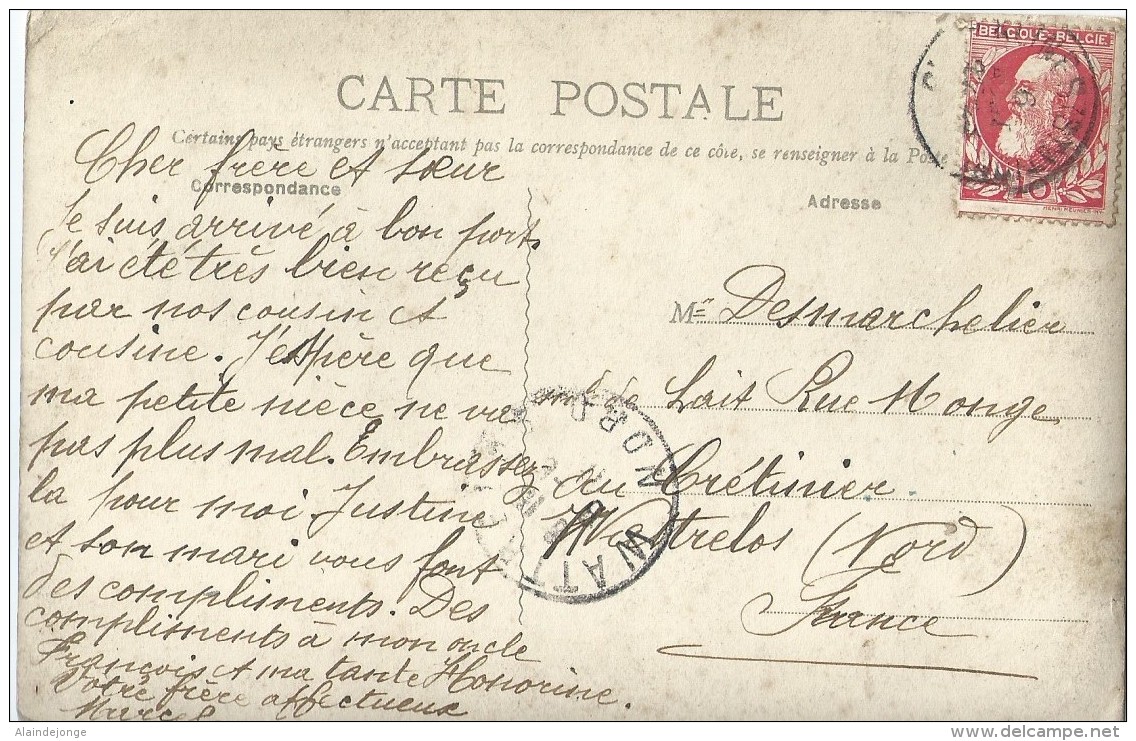 BELGIQUE-BELGIE
10
HENRI MEUNIER INV.
CARTE POSTALE
Certains pays étrangers n'acceptant pas la correspondance de ce côté, se renseigner à la Poste
Correspondance
Adresse
Cher frère et sœur
Je suis arrivé à bon port.
J'ai été très bien reçu
par nos cousin et
cousine. J'espère que
ma petite nièce ne va
pas plus mal. Embrassez
la pour moi Justine
et son mari vous font
des compliments. Des
compliments à mon oncle
François et ma tante Honorine.
Votre frère affectueux
Marcel
Mr Desmarchelier
md de Lait Rue Monge
au Crétinier
Wattrelos (Nord)
France
NORD
Alaindejonge
www.delcampe.net